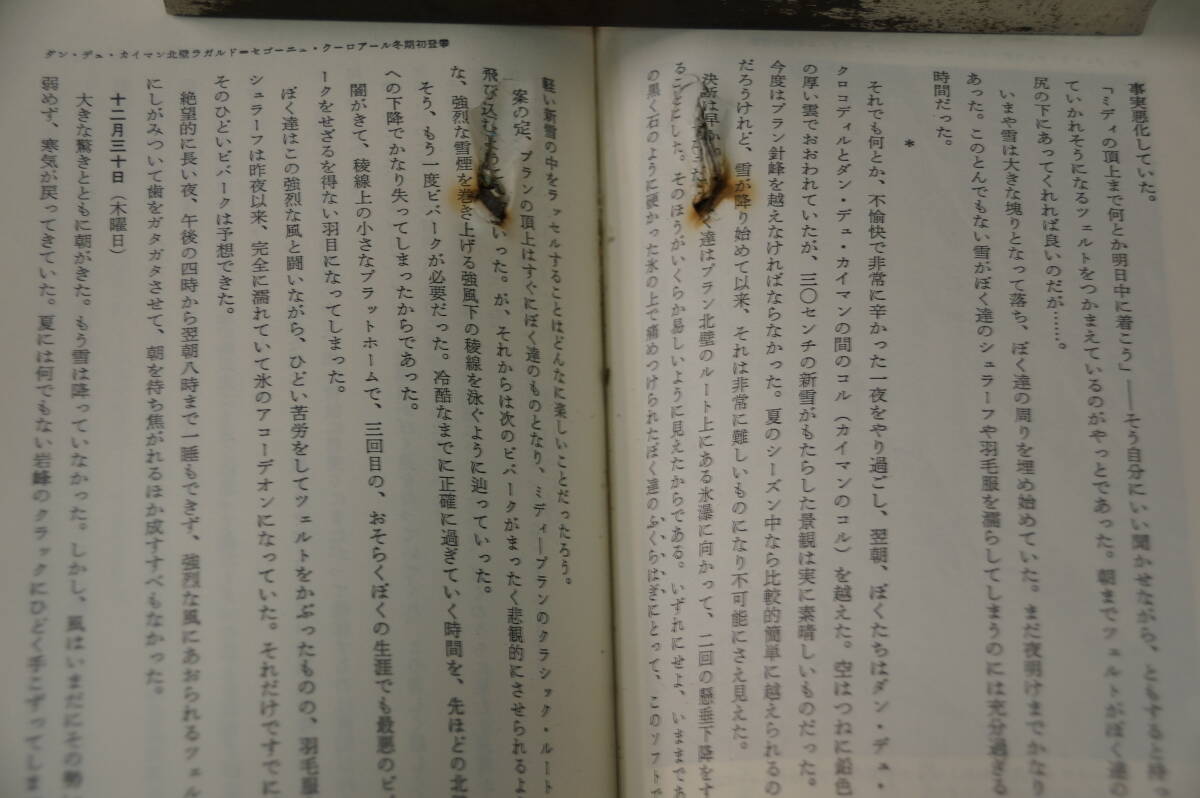 事実悪化していた。
「ミディの頂上まで何とか明日中に着こう」――そう自分にいい聞かせながら、ともすると持っ
ていかれそうになるツェルトをつかまえているのがやっとであった。朝までツェルトがぼく達の
尻の下にあってくれれば良いのだが……。
いまや雪は大きな塊りとなって落ち、ぼく達の周りを埋め始めていた。まだ夜明けまでかなり
あった。このとんでもない雪がぼく達のシュラーフや羽毛服を濡らしてしまうのには充分過ぎる
時間だった。
*
それでも何とか、不愉快で非常に辛かった一夜をやり過ごし、翌朝、ぼくたちはダン・デュ・
クロコディルとダン・デュ・カイマンの間のコル（カイマンのコル）を越えた。空はつねに鉛色
の厚い雲でおおわれていたが、三〇センチの新雪がもたらした景観は実に素晴しいものだった。
今度はプラン針峰を越えなければならなかった。夏のシーズン中なら比較的簡単に越えられるの
だろうけれど、雪が降り始めて以来、それは非常に難しいものになり不可能にさえ見えた。
決断は早か
く達はプラン北壁のルート上にある氷瀑に向かって、二回の懸垂下降をす
ることにした。そのほうがいくらか易しいように見えたからである。いずれにせよ、いままで
の黒く石のように硬かった氷の上で痛めつけられたぼく達のふくらはぎにとって、このソフトで
軽い新雪の中をラッセルすることはどんなに楽しいことだったろう。
案の定、プランの頂上はすぐにぼく達のものとなり、ミディ―プランのクラシック・ルート
飛び込むように
いった。が、それからは次のビバークがまったく悲観的にさせられるよ
な、強烈な雪煙を巻き上げる強風下の稜線を泳ぐように辿っていった。
そう、もう一度ビバークが必要だった。冷酷なまでに正確に過ぎていく時間を、先ほどの北
への下降でかなり失ってしまったからであった。
闇がきて、稜線上の小さなプラットホームで、三回目の、おそらくぼくの生涯でも最悪のビ
ークをせざるを得ない羽目になってしまった。
ぼく達はこの強烈な風と闘いながら、ひどい苦労をしてツェルトをかぶったものの、羽毛服
シュラーフは昨夜以来、完全に濡れていて氷のアコーデオンになっていた。それだけですでに
そのひどいビバークは予想できた。
絶望的に長い夜、午後の四時から翌朝八時まで一睡もできず、強烈な風にあおられるツェル
にしがみついて歯をガタガタさせて、朝を待ち焦がれるほか成すすべもなかった。
十二月三十日（木曜日）
大きな驚きとともに朝がきた。もう雪は降っていなかった。しかし、風はいまだにその勢
弱めず、寒気が戻ってきていた。夏には何でもない岩峰のクラックにひどく手こずってしま
ダン・デュ・カイマン北壁ラガルド＝セゴーニュ・クーロアール冬期初登攀